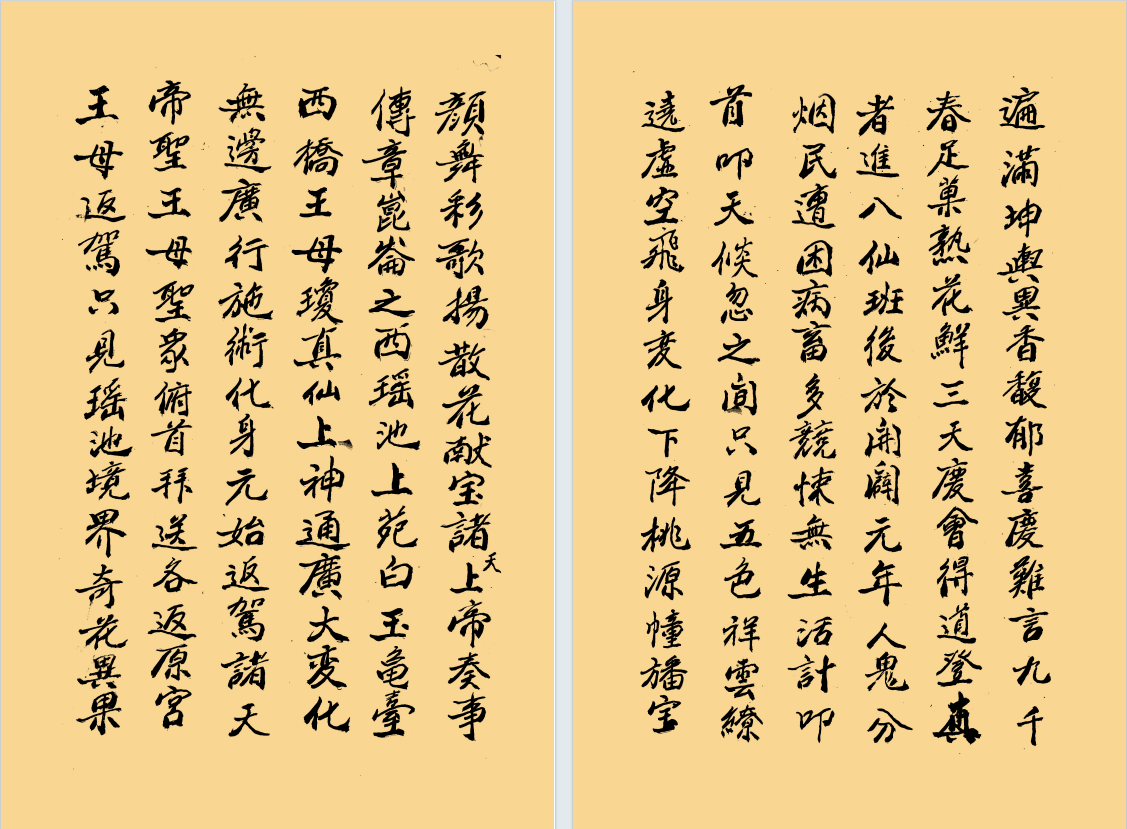 遍滿坤輿異香馥郁喜慶難言九千
春足菓熟花鮮三天慶會得道登真
者進八仙班後於開闢元年人鬼分
烟民遭困病畜多競悚無生活計叩
首叩天倐忽之间只見五色祥雲繚
遶虛空飛身变化下降桃源幢旛宝
顏舞彩歌揚散花献宝諸天上帝奏事
傳章崑崙之西瑶池上苑白玉亀臺
西橋王母瓊真仙上神通廣大变化
無邊廣行施術化身元始返駕諸天
帝聖王母聖衆俯首拜送各返原宮
王母返駕只見瑶池境界奇花異果